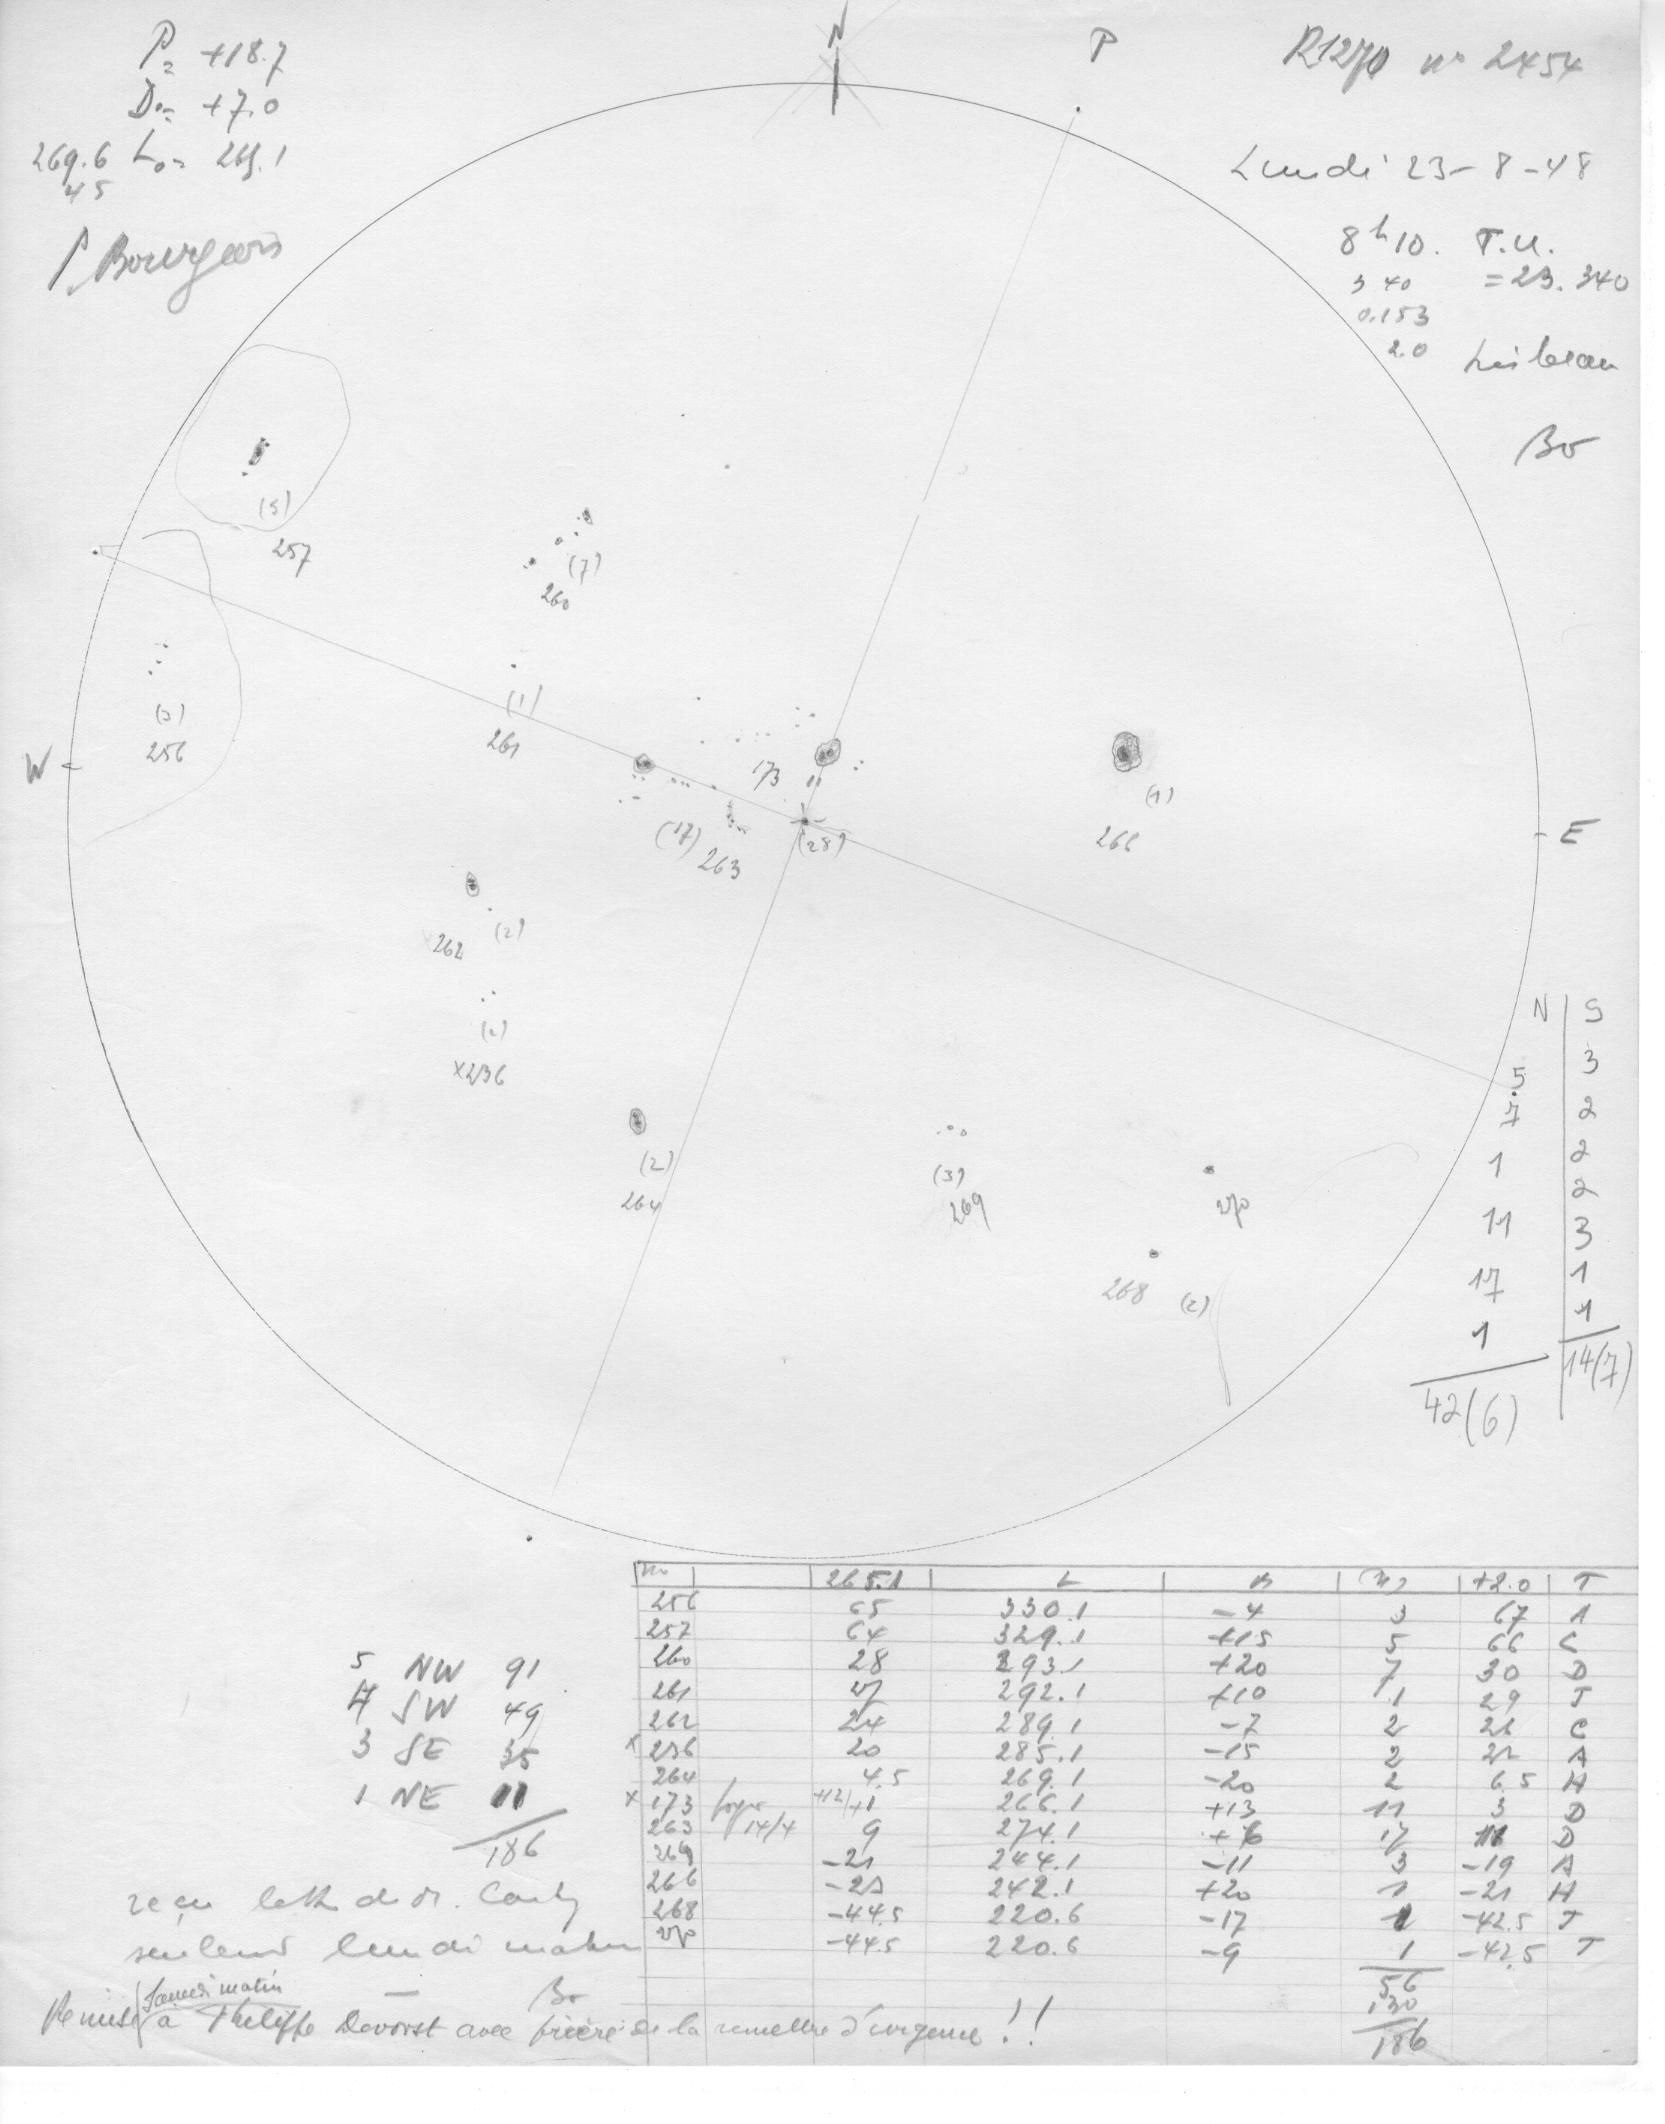 P= +18.7
D.= +7.0
269.6 Lo=
45
P. Bourgeois
N
P
R1270 no 2454
Lundi 23-8-48
8h10. T.U.
3 40 =23.340
0.153
2.0
Bo
W
E
(5)
257
(7)
260
(3)
256
(1)
261
173
(1)
266
(17)
263
(28)
(2)
262
(2)
x236
(2)
264
(3)
269
268 (2)
N | S
5 3
7 2
1 2
11 2
17 3
1 1
1
14(7)
42(6)
265.1 L B +2.0 T
256 65 330.1 -4 3 67 A
257 64 329.1 +15 5 66 C
260 28 293.1 +20 7 30 D
261 27 292.1 +10 1 29 J
262 24 289.1 -7 2 26 C
x 236 20 285.1 -15 2 22 A
264 4.5 269.1 -20 2 6.5 H
x 173 foyer 14/4 +12/+1 266.1 +13 11 3 D
263 9 274.1 17 11 D
269 -21 244.1 -11 3 -19 A
266 242.1 +20 1 -21 H
268 -44.5 220.6 -17 1 -42.5 J
-44.5 220.6 -9 1 -42.5 T
56
130
186
5 NW 91
4 SW 49
3 SE 35
1 NE 11
186
reçu
lundi matin
Bo
Remise samedi matin
à Philippe Devorst avec prière de la remettre d'urgence !!